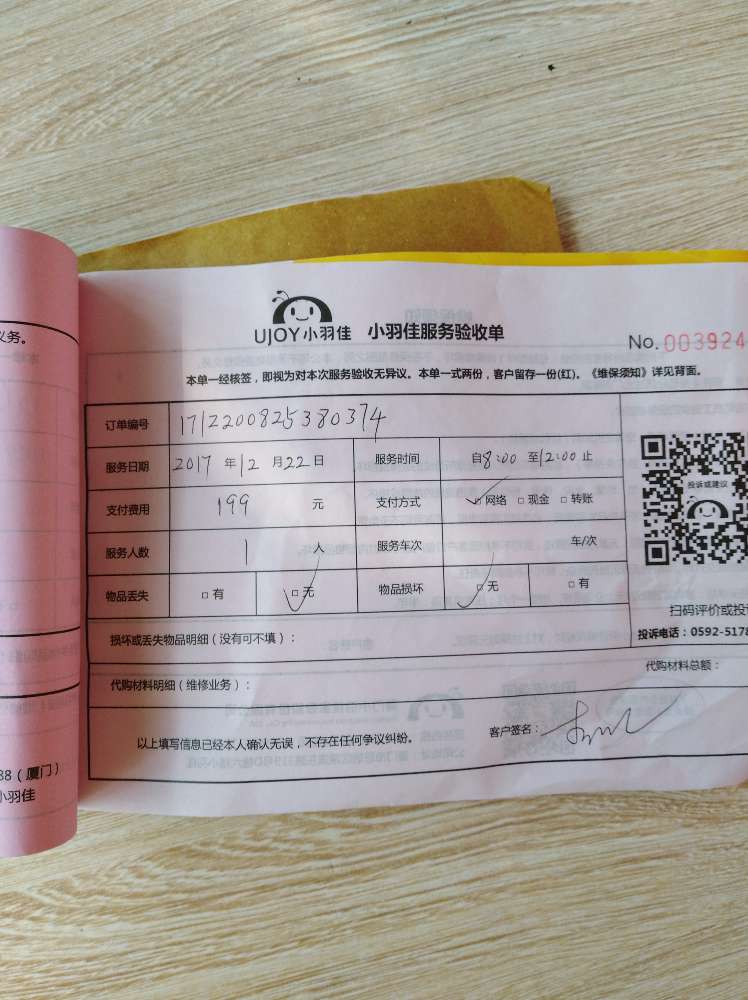 义务。
UJOY小羽佳 小羽佳服务验收单
No.003924
本单一经核签，即视为对本次服务验收无异议。本单一式两份，客户留存一份(红)。《维保须知》详见背面。
订单编号 1712200825380374
服务日期 2017 年 12 月 22 日 服务时间 自8:00 至12:00 止
支付费用 199 元 支付方式 ✓网络 □ 现金 □ 转账
服务人数 1 人 服务车次 车/次
物品丢失 □ 有 □ 无 物品损坏 □ 无 □ 有
投诉或建议
扫码评价或投
损坏或丢失物品明细（没有可不填）：
投诉电话：0592-5178
代购材料明细（维修业务）：
代购材料总额：
以上填写信息已经本人确认无误，不存在任何争议纠纷。
客户签名：
88（厦门）
小羽佳